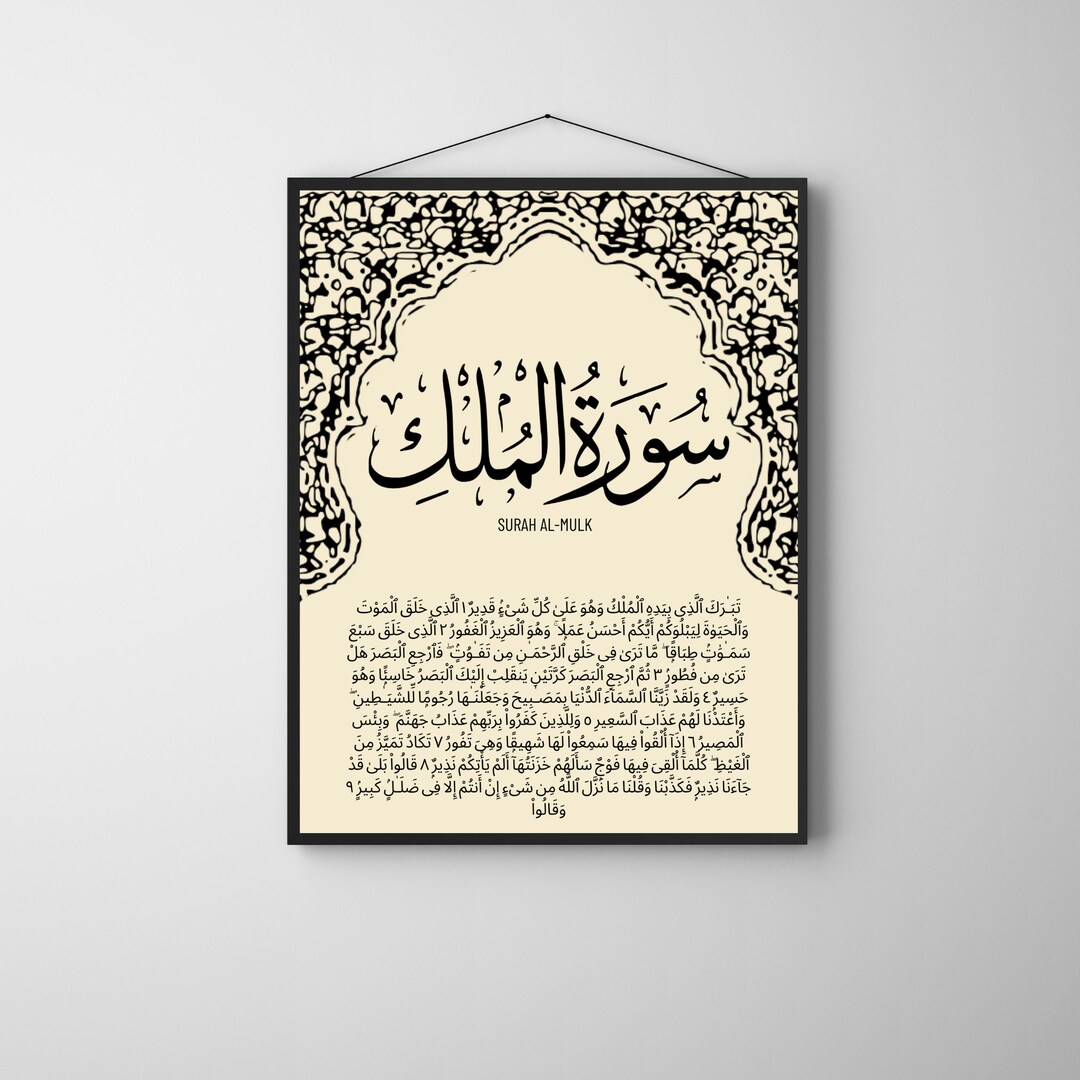 سُورَةُ المُلْكِ
SURAH AL-MULK
تَبَـٰرَكَ ٱلَّذِى بِيَدِهِ ٱلْمُلْكُ وَهُوَ عَلَىٰ كُلِّ شَىْءٍۢ قَدِيرٌ ١ ٱلَّذِى خَلَقَ ٱلْمَوْتَ
وَٱلْحَيَوٰةَ لِيَبْلُوَكُمْ أَيُّكُمْ أَحْسَنُ عَمَلًۭا ۚ وَهُوَ ٱلْعَزِيزُ ٱلْغَفُورُ ٢ ٱلَّذِى خَلَقَ سَبْعَ
سَمَـٰوَٰتٍۢ طِبَاقًۭا ۖ مَّا تَرَىٰ فِى خَلْقِ ٱلرَّحْمَـٰنِ مِن تَفَـٰوُتٍۢ ۖ فَٱرْجِعِ ٱلْبَصَرَ هَلْ
تَرَىٰ مِن فُطُورٍۢ ٣ ثُمَّ ٱرْجِعِ ٱلْبَصَرَ كَرَّتَيْنِ يَنقَلِبْ إِلَيْكَ ٱلْبَصَرُ خَاسِئًۭا وَهُوَ
حَسِيرٌۭ ٤ وَلَقَدْ زَيَّنَّا ٱلسَّمَآءَ ٱلدُّنْيَا بِمَصَـٰبِيحَ وَجَعَلْنَـٰهَا رُجُومًۭا لِّلشَّيَـٰطِينِ ۖ
وَأَعْتَدْنَا لَهُمْ عَذَابَ ٱلسَّعِيرِ ٥ وَلِلَّذِينَ كَفَرُوا۟ بِرَبِّهِمْ عَذَابُ جَهَنَّمَ ۖ وَبِئْسَ
ٱلْمَصِيرُ ٦ إِذَآ أُلْقُوا۟ فِيهَا سَمِعُوا۟ لَهَا شَهِيقًۭا وَهِىَ تَفُورُ ٧ تَكَادُ تَمَيَّزُ مِنَ
ٱلْغَيْظِ ۖ كُلَّمَآ أُلْقِىَ فِيهَا فَوْجٌۭ سَأَلَهُمْ خَزَنَتُهَآ أَلَمْ يَأْتِكُمْ نَذِيرٌۭ ٨ قَالُوا۟ بَلَىٰ قَدْ
جَآءَنَا نَذِيرٌۭ فَكَذَّبْنَا وَقُلْنَا مَا نَزَّلَ ٱللَّهُ مِن شَىْءٍ إِنْ أَنتُمْ إِلَّا فِى ضَلَـٰلٍۢ كَبِيرٍۢ ٩
وَقَالُوا۟